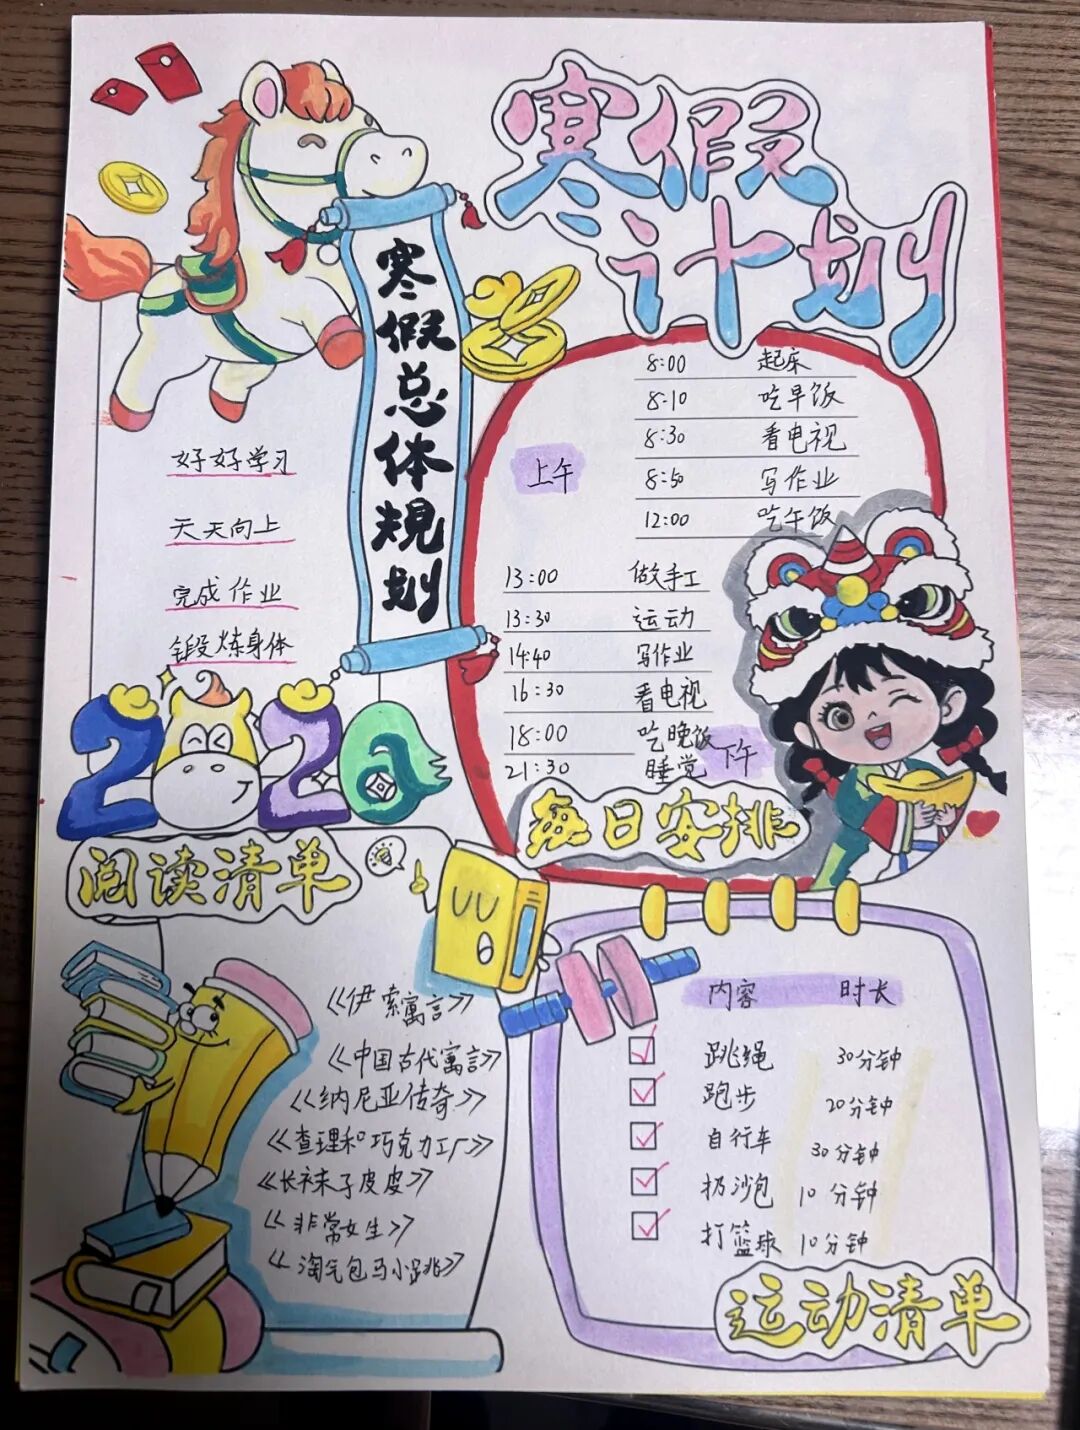 寒假
计划
寒假总体规划
好好学习
天天向上
完成作业
锻炼身体
2026
上午
8:00 起床
8:10 吃早饭
8:30 看电视
8:50 写作业
12:00 吃午饭
13:00 做手工
13:30 运动
14:40 写作业
16:30 看电视
18:00 吃晚饭
21:30 睡觉
下午
每日安排
阅读清单
《伊索寓言》
《中国古代寓言》
《纳尼亚传奇》
《查理和巧克力工厂》
《长袜子皮皮》
《非常女生》
《淘气包马小跳》
内容 时长
跳绳 30分钟
跑步 20分钟
自行车 30分钟
扔沙包 10分钟
打篮球 10分钟
运动清单